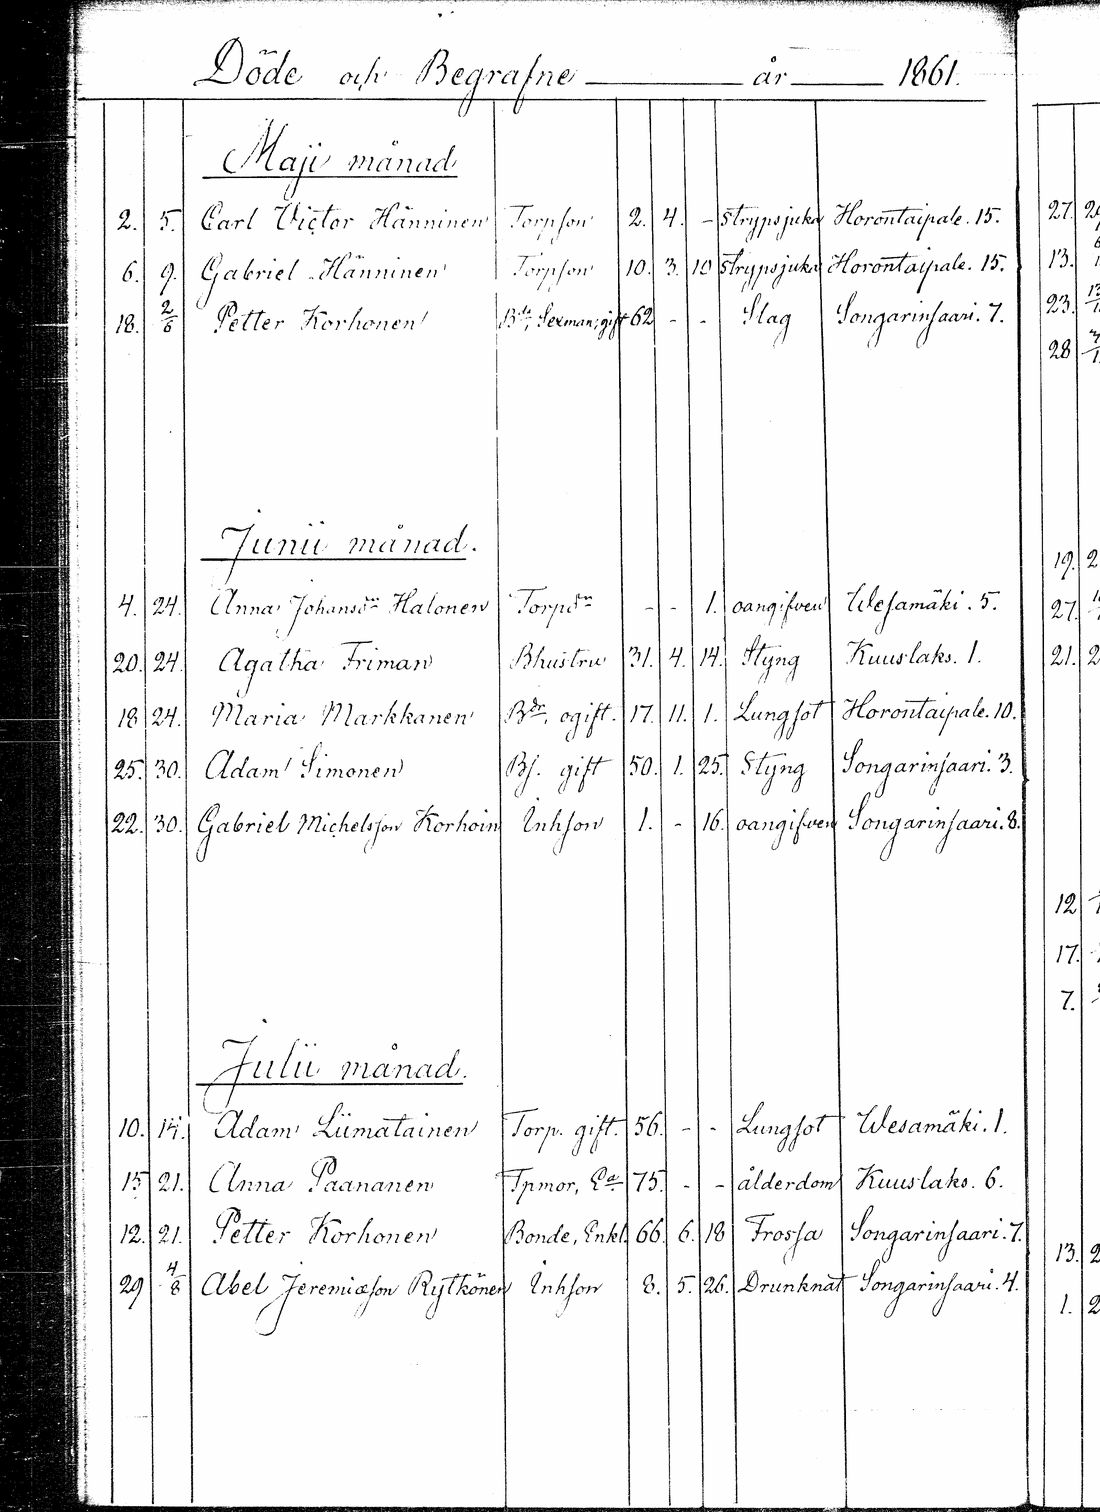 Döde och Begrafne — år — 1861.
Maji månad
2. 5. Carl Victor Hänninen Torpson 2. 4. - Strypsjuka Horontaipale. 15.
6. 9. Gabriel Hänninen Torpson 10. 3. 10 Strypsjuka Horontaipale. 15.
18. 2/6 Petter Korhonen Bde, Sexman, gift 62 - - Slag Songarinsaari. 7.
Junii månad.
4. 24. Anna Johansdr Halonen Torpdr - - 1. oangifven Wesamäki. 5.
20. 24. Agatha Friman Bhustru 31. 4. 14. Styng Kuuslaks. 1.
18 24. Maria Markkanen Bdr, ogift. 17. 11. 1. Lungsot Horontaipale. 10.
25. 30. Adam Simonen Bs. gift 50. 1. 25. Styng Songarinsaari. 3.
22. 30. Gabriel Michelsson Korhoin Inhson 1. - 16. oangifven Songarinsaari. 8.
Julii månad.
10. 14. Adam Liimatainen Torp. gift. 56. - - Lungsot Wesamäki. 1.
15 21. Anna Paananen Tpmor, Ea 75. - - ålderdom Kuuslaks. 6.
12. 21. Petter Korhonen Bonde, Enkl. 66. 6. 18 Frossa Songarinsaari. 7.
29 4/8 Abel Jeremiæson Rytkönen Inhson 8. 5. 26. Drunknat Songarinsaari. 4.
27.
13.
23.
28
19.
27.
21.
12
17.
7.
13.
1.